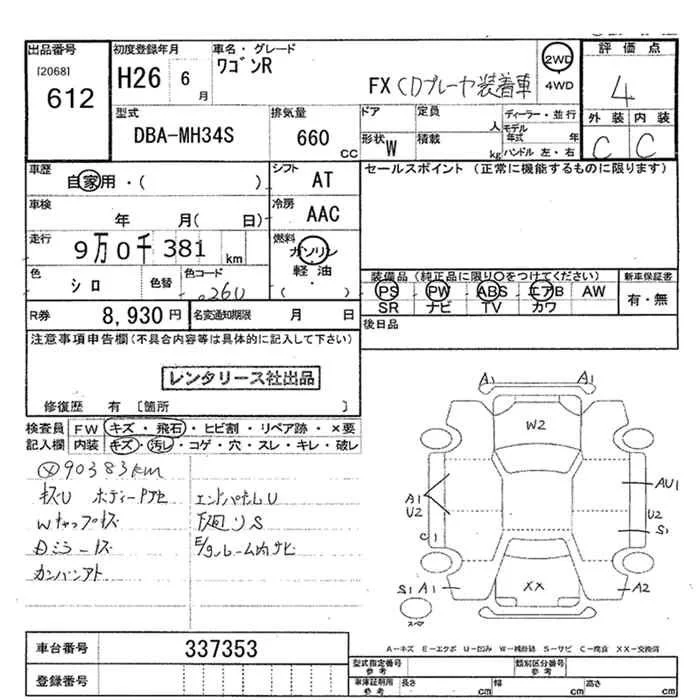 出品番号
[2068]
612
初度登録年月
H26 6 月
車名・グレード
ワゴンR
FX CDプレーヤ装着車
2WD
4WD
評価点
4
外装 内装
C C
型式
DBA-MH34S
排気量
660 cc
ドア
定員 人
形状 W
積載 kg
ディーラー・並行
モデル年式 年
ハンドル 左・右
車歴
自家用・( )
シフト
AT
車検
年 月( 日)
冷房
AAC
走行
9万0千381 km
燃料
ガソリン
軽油
( ・ )
色
シロ
色替
色コード
026U
R券
8,930円
名変通知期限 月 日
セールスポイント (正常に機能するものに限ります)
装備品(純正品に限り○をつけてください)
PS PW ABS エアB AW
SR ナビ TV カワ
新車保証書
有・無
後日品
注意事項申告欄(不具合内容等は具体的に記入して下さい)
レンタリース社出品
修復歴 有 〔箇所 〕
検査員記入欄
FW キズ・飛石・ヒビ割・リペア跡・×要
内装 キズ・汚レ・コゲ・穴・スレ・キレ・破レ
90383km
エンドパネルU
Wキャップキズ
下廻りS
Dミラーキズ
カンバンアト
A1 A1
W2
A1
U2
C1
AU1
U2
S1
S1 A1
XX
A2
A-キズ E-エクボ U-凹み W-補修跡 S-サビ C-腐食 XX-交換済
車台番号
337353
登録番号
型式指定番号
参考
類別区分番号
参考
車庫証明用
参考
長さ cm 幅 cm 高さ cm